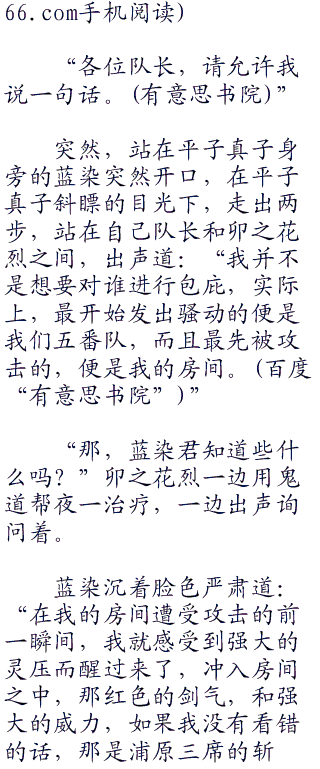 66.com手机阅读)
“各位队长，请允许我
说一句话。(有意思书院)”
突然，站在平子真子身
旁的蓝染突然开口，在平子
真子斜瞟的目光下，走出两
步，站在自己队长和卯之花
烈之间，出声道：“我并不
是想要对谁进行包庇，实际
上，最开始发出骚动的便是
我们五番队，而且最先被攻
击的，便是我的房间。(百度
“有意思书院”)”
“那，蓝染君知道些什
么吗？”卯之花烈一边用鬼
道帮夜一治疗，一边出声询
问着。
蓝染沉着脸色严肃道：
“在我的房间遭受攻击的前
一瞬间，我就感受到强大的
灵压而醒过来了，冲入房间
之中，那红色的剑气，和强
大的威力，如果我没有看错
的话，那是浦原三席的斩